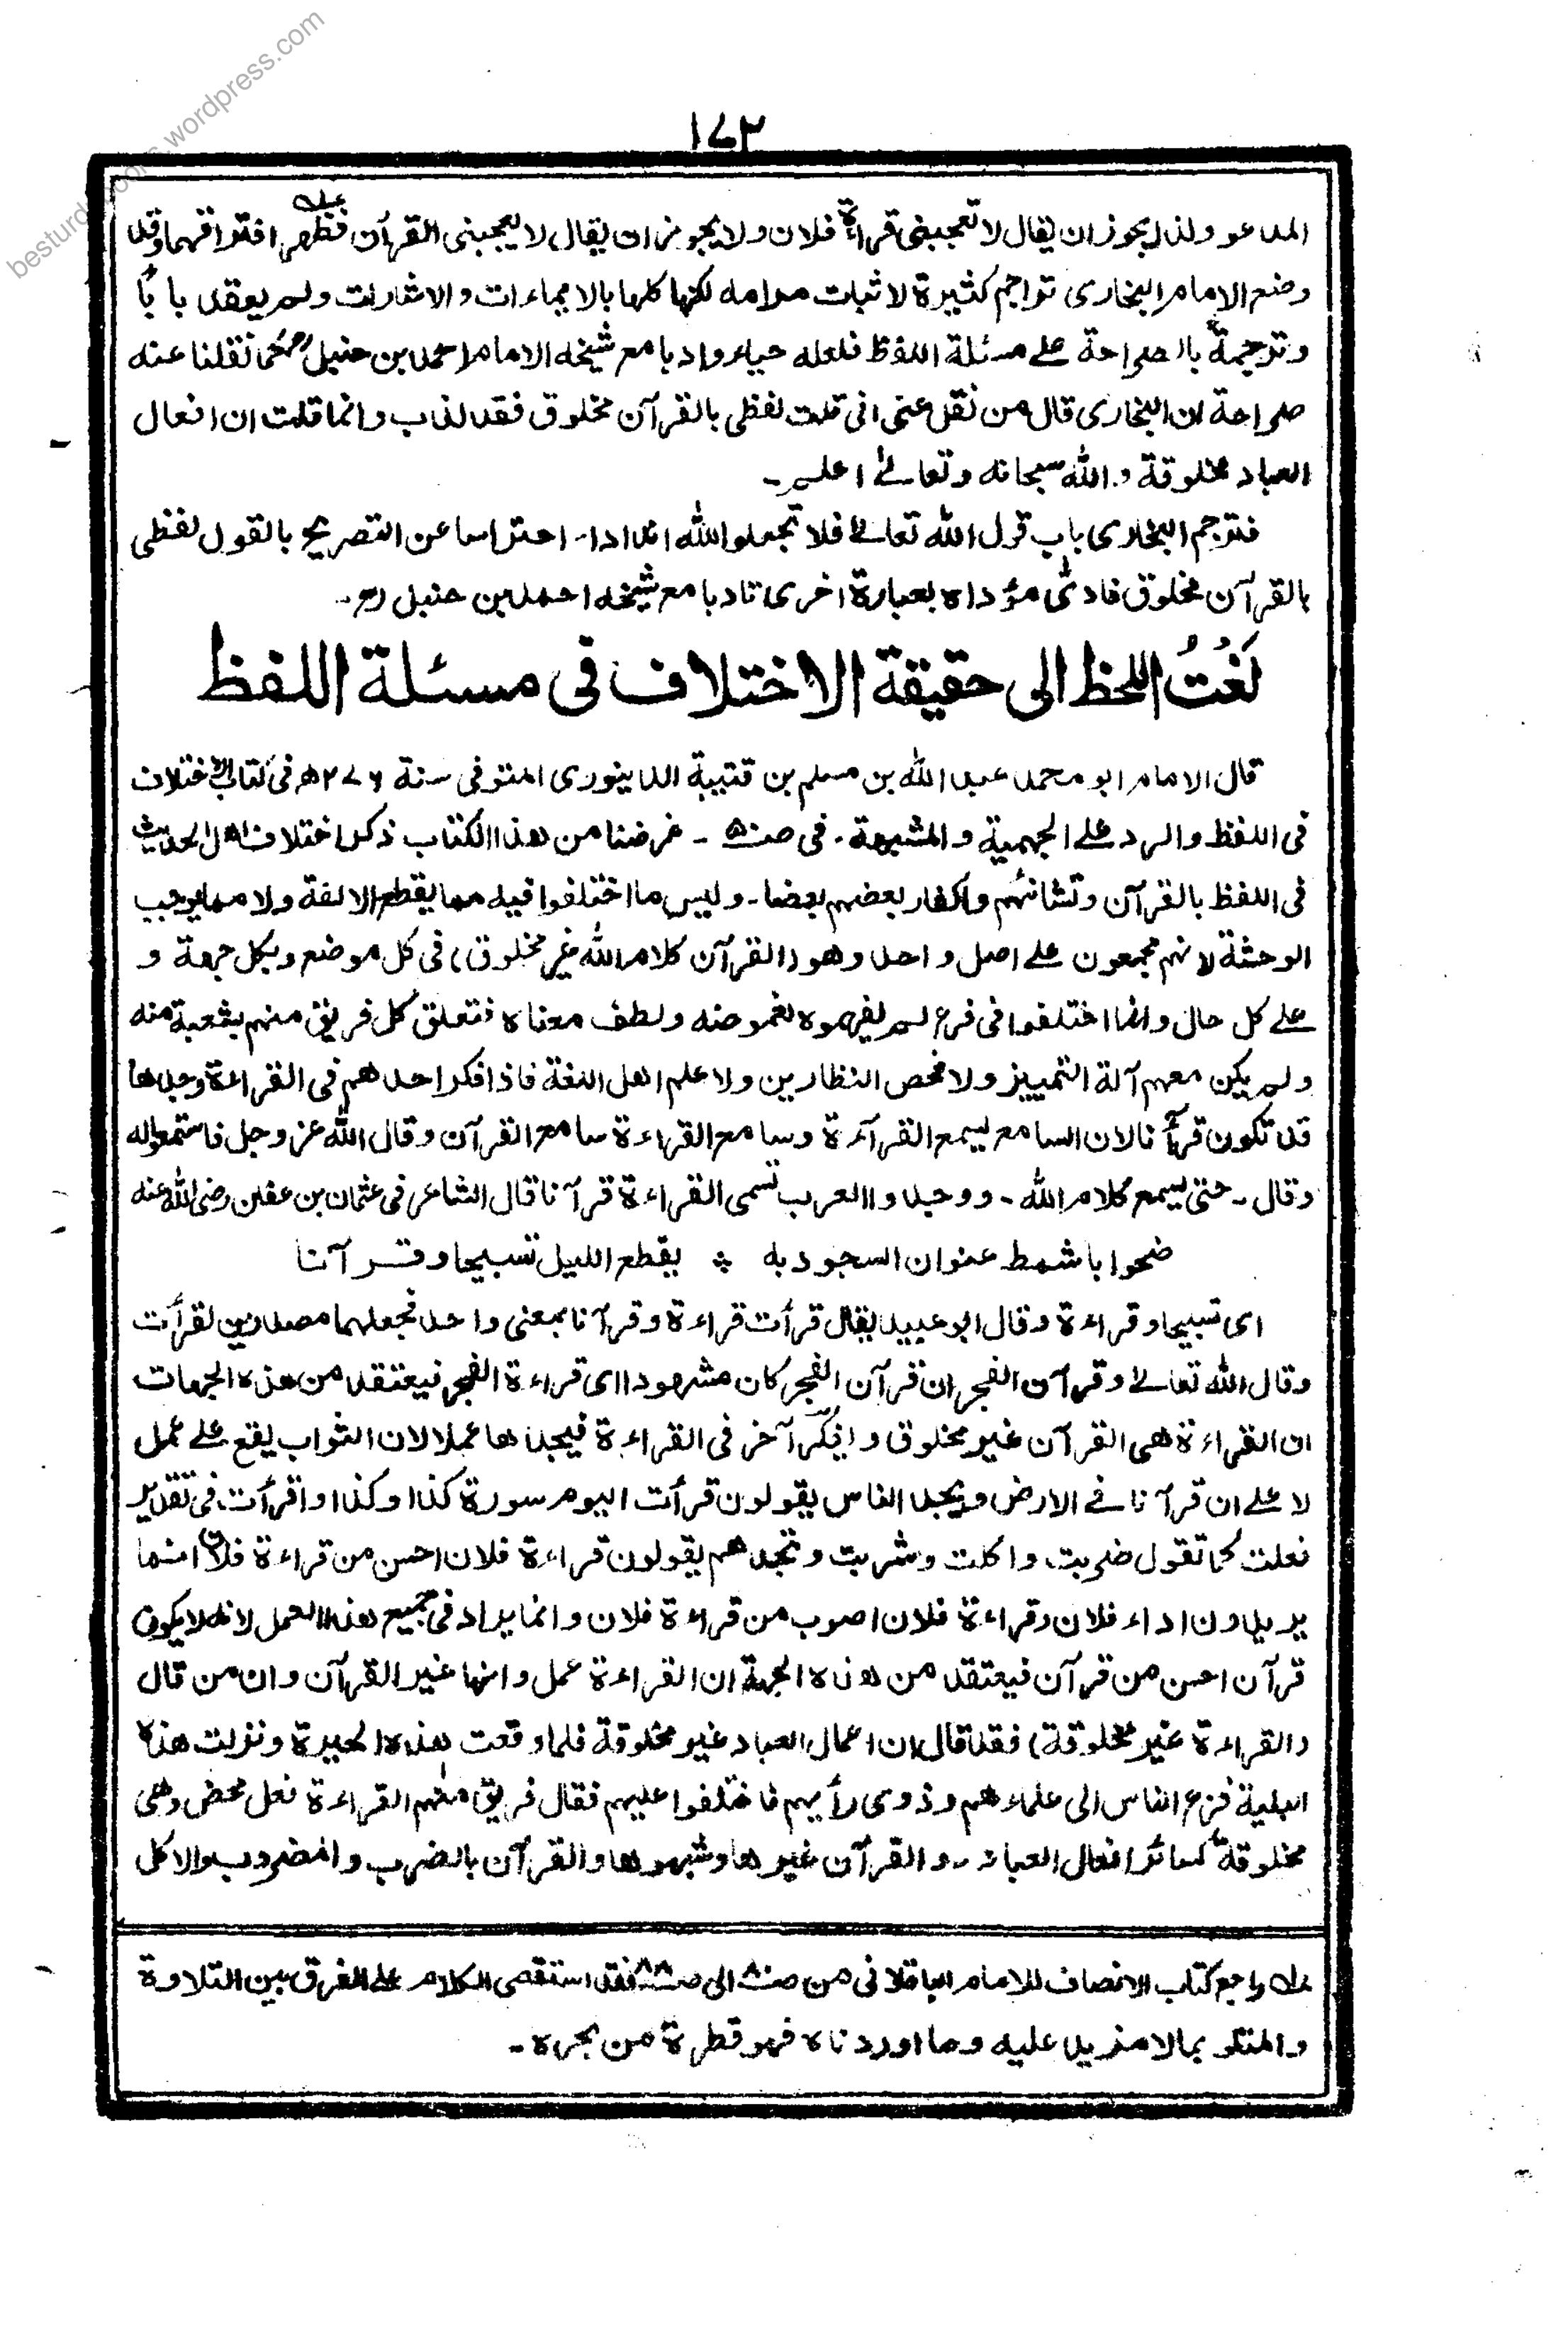 besturdubooks.wordpress.com
۱۷۳
المدعو ولذا يجوز ان يقال لا تعجبنى قراءة فلان ولا يجوز ان يقال لا يعجبنى القرآن فظهر افتراقهما وقد
وضع الامام البخارى تراجم كثيرة لاثبات مرامه لكنها كلها بالايماءات والاشارات ولم يعقد بابًا
وترجمة بالصراحة على مسئلة اللفظ فلعله حياء وادبا مع شيخه الامام احمد بن حنبل رح كما نقلنا عنه
صراحة ان البخارى قال من نقل عنى انى قلت لفظى بالقرآن مخلوق فقد كذب وانما قلت ان افعال
العباد مخلوقة والله سبحانه وتعالى اعلم۔
فترجم البخارى باب قول الله تعالى فلا تجعلوا لله اندادا۔ احتراسا عن التصريح بالقول لفظى
بالقرآن مخلوق فادى مؤداه بعبارة اخرى تادبا مع شيخه احمد بن حنبل رح۔
لَغْتُ اللحظ الى حقيقة الاختلاف فى مسئلة اللفظ
قال الامام ابو محمد عبد الله بن مسلم بن قتيبة الدينورى المتوفى سنة ۲۷۶ھ فى كتاب الاختلاف
فى اللفظ والرد على الجهمية والمشبهة۔ فى ص۵۰ ۔ غرضنا من هذا الكتاب ذكر اختلاف اهل الحديث
فى اللفظ بالقرآن وتشانئهم واكفار بعضهم بعضا۔ وليس ما اختلفوا فيه مما يقطع الالفة ولا مما يوجب
الوحشة لانهم مجمعون على اصل واحد وهو (القرآن كلام الله غير مخلوق) فى كل موضع وبكل جهة و
على كل حال وانما اختلفوا فى فرع لم يفهموه لغموضه ولطف معناه فتعلق كل فريق منهم بشعبة منه
ولم يكن معهم آلة التمييز ولا فحص النظارين ولا علم اهل اللغة فاذا فكر احدهم فى القراءة وجدها
قد تكون قرآنا لان السامع يسمع القراءة وسامع القراءة سامع القرآن وقال الله عز وجل فاستمعوا له
وقال۔ حتى يسمع كلام الله۔ ووجدوا العرب تسمى القراءة قرآنا قال الشاعر فى عثمان بن عفان رضى الله عنه
ضحوا باشمط عنوان السجود به ؞ يقطع الليل تسبيحا وقرآنا
اى تسبيحا وقراءة وقال ابو عبيد يقال قرأت قراءة وقرآنا بمعنى واحد فجعلهما مصدرين لقرأت
وقال الله تعالى وقرآن الفجر ان قرآن الفجر كان مشهودا اى قراءة الفجر فيعتقد من هذه الجهات
ان القراءة هى القرآن غير مخلوق ويفكر آخر فى القراءة فيجدها عملا لان الثواب يقع على عمل
لا على ان قرآنا فى الارض ويجد الناس يقولون قرأت اليوم سورة كذا وكذا وقرأت فى تقدير
فعلت كما تقول ضربت واكلت وشربت وتجدهم يقولون قراءة فلان احسن من قراءة فلان انما
يريدون اداء فلان وقراءة فلان اصوب من قراءة فلان وانما يراد فى جميع هذا العمل لانه لا يكون
قرآن احسن من قرآن فيعتقد من هذه الجهة ان القراءة عمل وانها غير القرآن وان من قال
(القراءة غير مخلوقة) فقد قال ان اعمال العباد غير مخلوقة فلما وقعت هذه الحيرة ونزلت هذه
البلية فزع الناس الى علماءهم وذوى رأيهم فاختلفوا عليهم فقال فريق منهم القراءة فعل محض وهى
مخلوقة كسائر افعال العباد۔ والقرآن غيرها وشبهوها والقرآن بالضرب والمضروب والاكل
راجع كتاب الانصاف للامام الباقلانى من ص۸۰ الى ص۸۸ فقد استقصى الكلام على الفرق بين التلاوة
والمتلو بما لا مزيد عليه وما اوردناه فهو قطرة من بحره۔